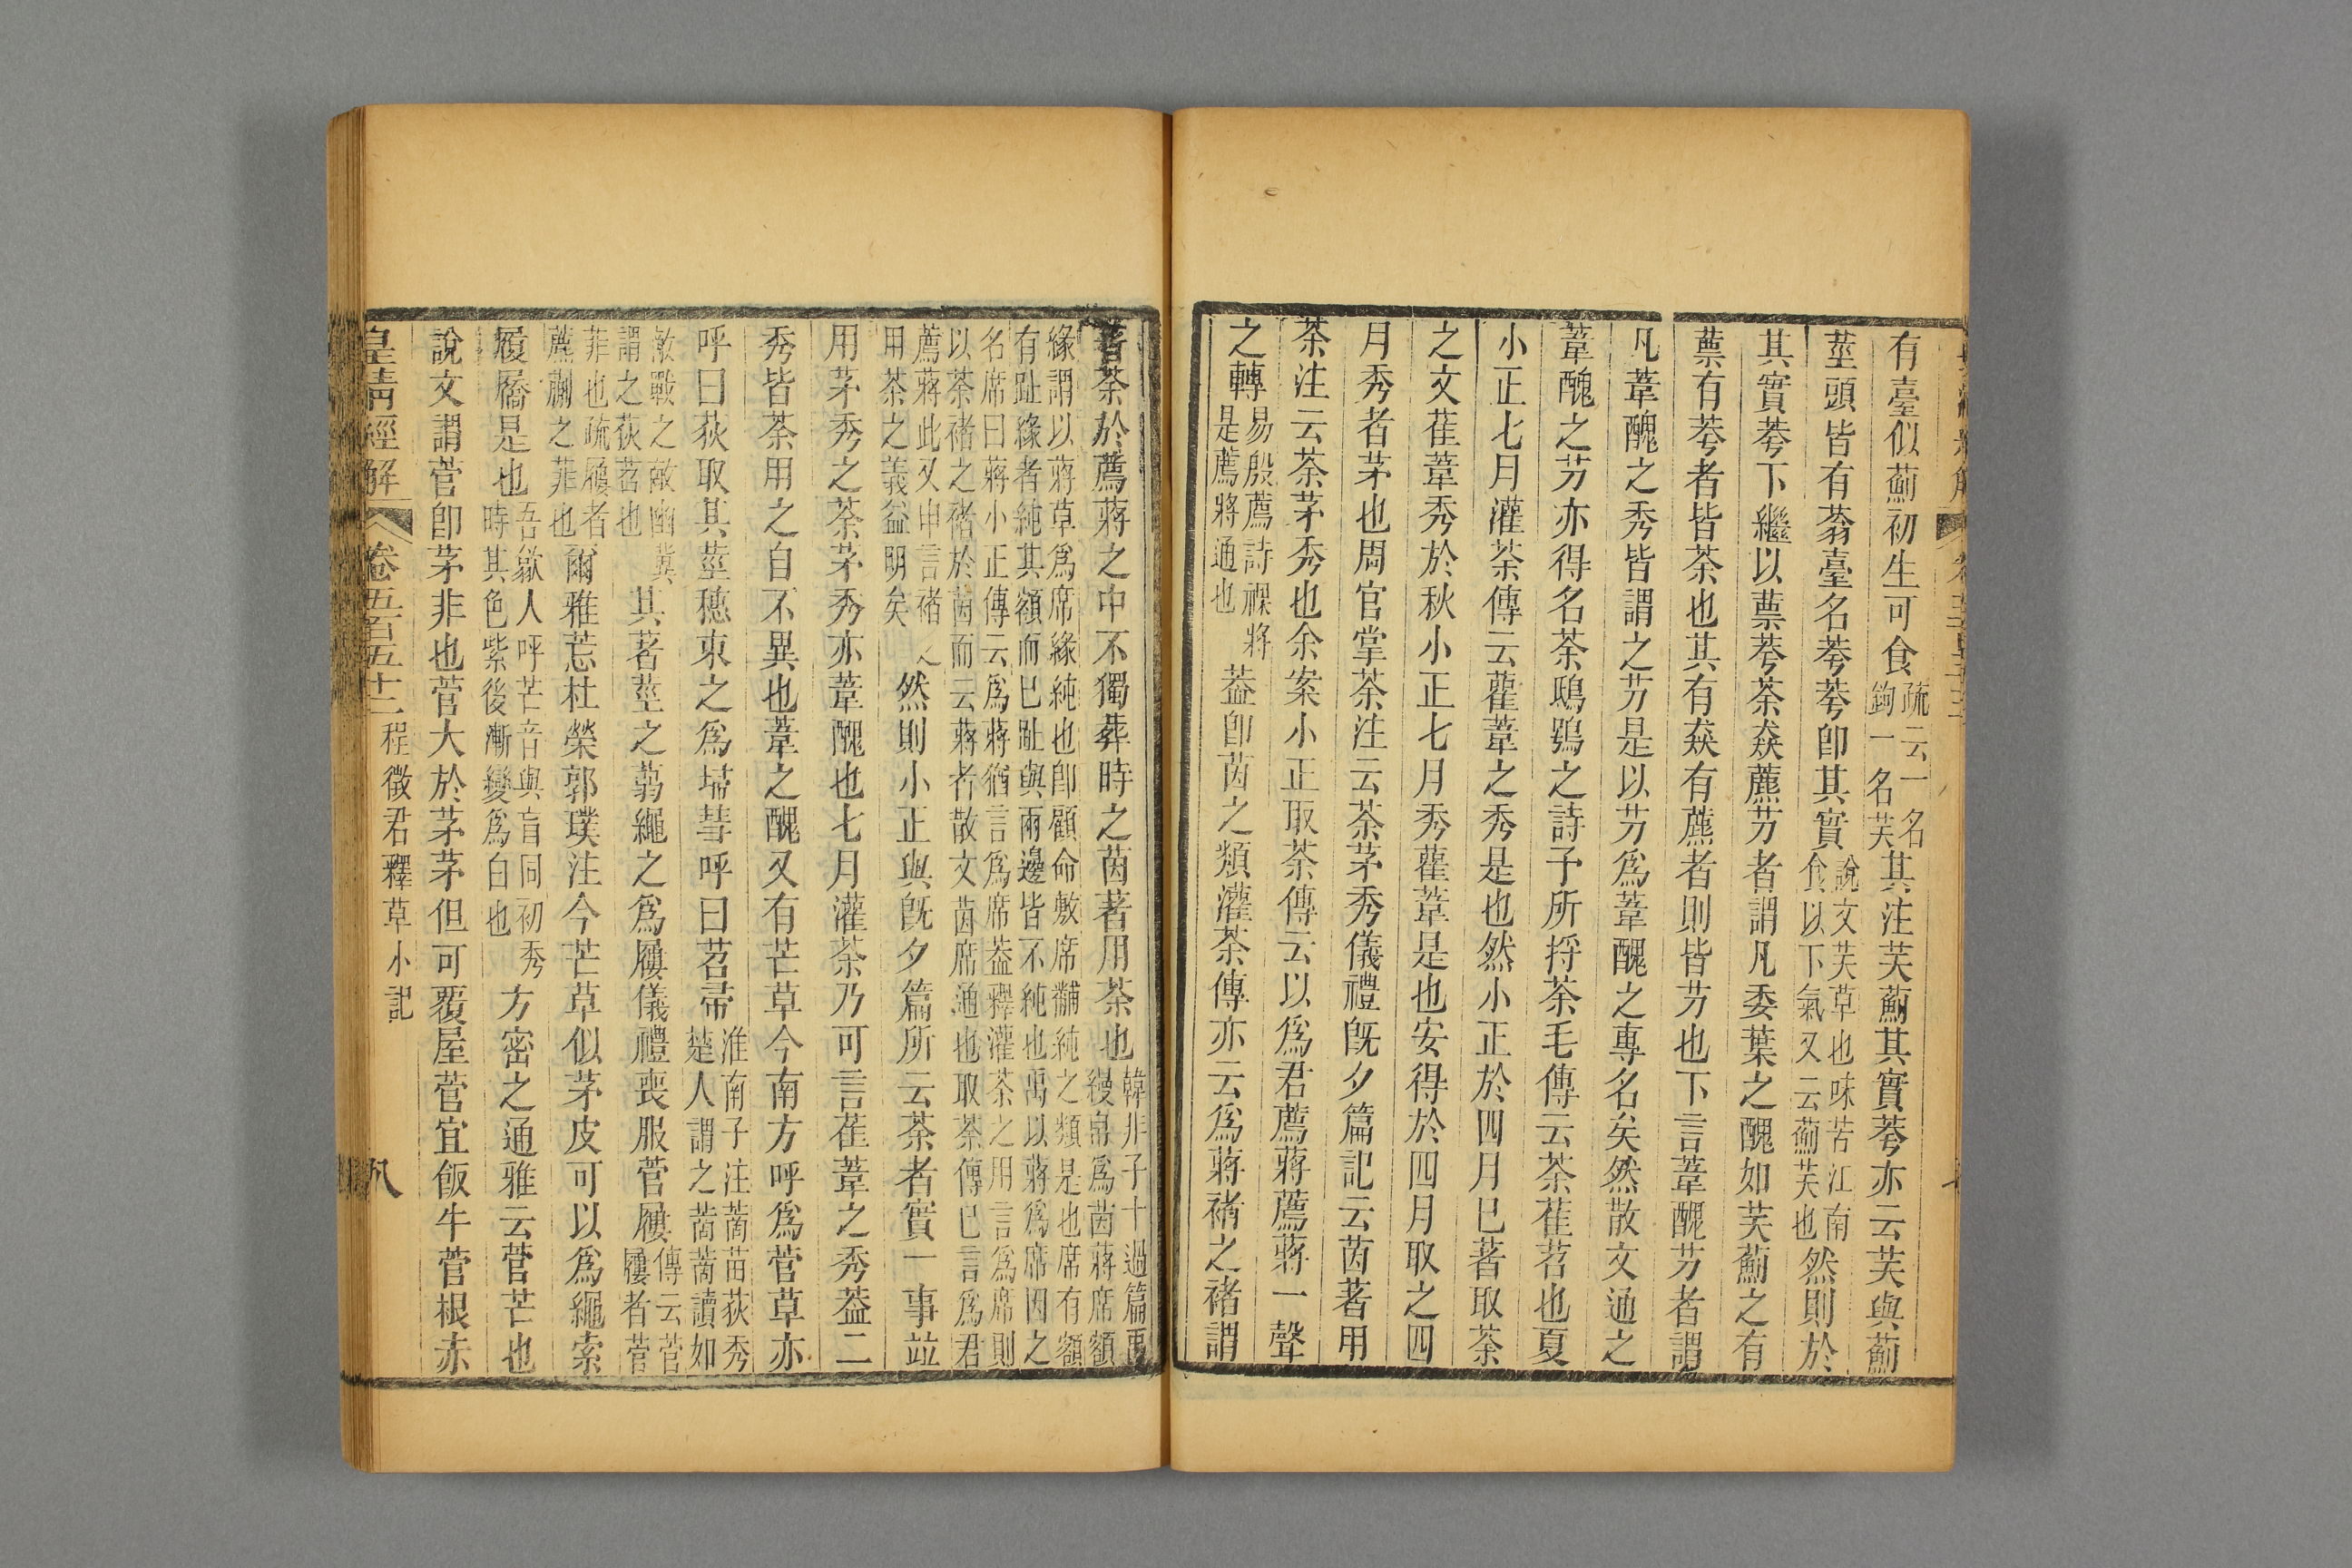 有臺似薊初生可食疏云一名鉤一名芺其注芺薊其實荂亦云芺與薊
莖頭皆有蓊臺名荂荂卽其實說文芺草也味苦江南食以下氣又云薊芺也然則於
其實荂下繼以蔈荂荼猋藨芀者謂凡委葉之醜如芺薊之有
蔈有荂者皆荼也其有猋有藨者則皆芀也下言葦醜芀者謂
凡葦醜之秀皆謂之芀是以芀爲葦醜之專名矣然散文通之
葦醜之芀亦得名荼鴟鴞之詩予所捋荼毛傳云荼萑苕也夏
小正七月灌荼傳云雚葦之秀是也然小正於四月已著取荼
之文萑葦秀於秋小正七月秀雚葦是也安得於四月取之四
月秀者茅也周官掌荼注云荼茅秀儀禮旣夕篇記云茵著用
荼注云荼茅秀也余案小正取荼傳云以爲君薦蔣薦蔣一聲
之轉易殷薦詩祼將是薦將通也葢卽茵之類灌荼傳亦云爲蔣褚之褚謂
著荼於薦蔣之中不獨葬時之茵著用荼也韓非子十過篇禹縵帛爲茵蔣席額
緣謂以蔣草爲席緣純也卽顧命敷席黼純之類是也席有額
有趾緣者純其額而已趾與兩邊皆不純也禹以蔣爲席因之
名席曰蔣小正傳云爲蔣猶言爲席葢釋灌荼之用言爲席則
以荼褚之褚於茵而云蔣者散文茵席通也取荼傳已言爲君
薦蔣此又申言褚之用荼之義益明矣然則小正與旣夕篇所云荼者實一事竝
用茅秀之荼茅秀亦葦醜也七月灌荼乃可言萑葦之秀葢二
秀皆荼用之自不異也葦之醜又有芒草今南方呼爲菅草亦
呼曰荻取其莖穗束之爲埽彗呼曰苕帚淮南子注䓫苗荻秀楚人謂之䓫䓫讀如
敵戰之敵幽冀謂之荻苕也其著莖之蒻繩之爲屨儀禮喪服菅屨傳云菅屨者菅
菲也疏屨者藨蒯之菲也爾雅莣杜榮郭璞注今芒草似茅皮可以爲繩索
履屩是也吾歙人呼芒音與盲同初秀時其色紫後漸變爲白也方密之通雅云菅芒也
說文謂菅卽茅非也菅大於茅茅但可覆屋菅宜飯牛菅根赤
皇清經解 卷五百五十二 程徵君釋草小記 八